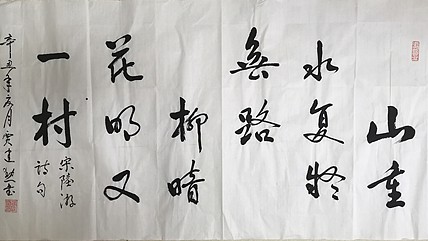 山重
水复疑
無路
柳暗
花明又
一村
宋陸游
詩句
辛丑年 月 建 书